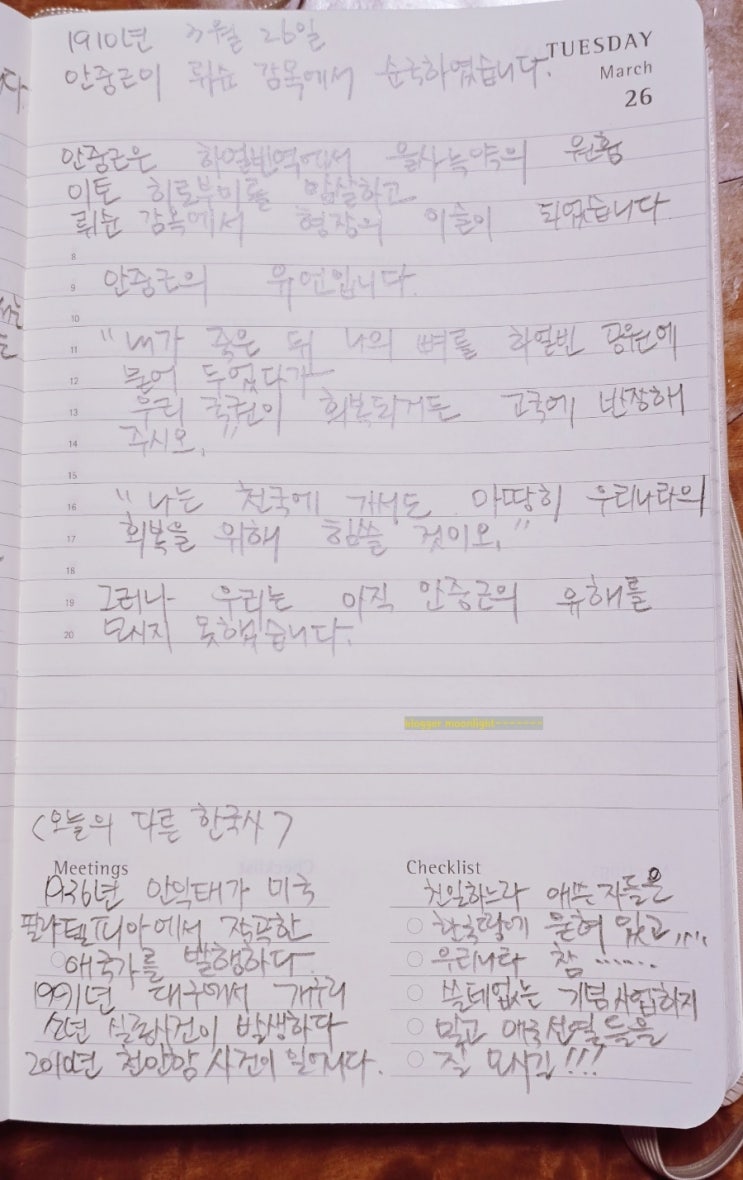 1910년 3월 26일
안중근이 뤼순 감옥에서 순국하였습니다.
TUESDAY
March
26
안중근은 하얼빈역에서 을사늑약의 원흉
이토 히로부미를 암살하고
뤼순 감옥에서 형장의 이슬이 되었습니다
8
9 안중근의 유언입니다.
10
11 "내가 죽은 뒤 나의 뼈를 하얼빈 공원에
12 묻어 두었다가
13 우리 국권이 회복되거든 고국에 반장해
14 주시오."
15
16 "나는 천국에 가서도 마땅히 우리나라의
17 회복을 위해 힘쓸 것이오."
18
19 그러나 우리는 아직 안중근의 유해를
20 모시지 못했습니다.
blogger moonlight~~~~~~~
<오늘의 다른 한국사>
Meetings
1936년 안익태가 미국
필라델피아에서 작곡한
애국가를 발행하다.
1991년 대구에서 개구리
소년 실종사건이 발생하다
2010년 천안함 사건이 일어나다.
Checklist
친일하느라 애쓴 자들은
한국땅에 묻혀 있고,,,,,
우리나라 참 ......
쓸데없는 기념사업하지
말고 애국선열들을
잘 모시길!!!